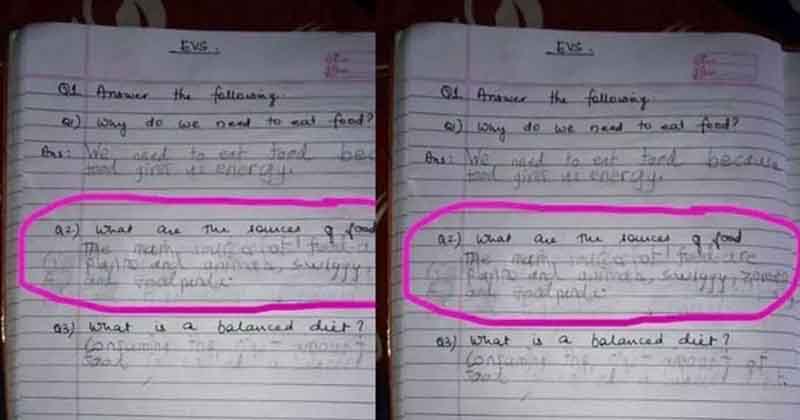 EVS.
Q1 Answer the following.
Q1) Why do we need to eat food?
Ans: We need to eat food bec
food gives us energy.
Q2) What are the sources of food
The main sources of food a
plants and animals, swigyy,
and foodpanda.
Q3) What is a balanced diet?
Consuming the amount
food
EVS.
Q1 Answer the following
Q1) Why do we need to eat food?
Ans: We need to eat food because
food gives us energy.
Q2) What are the sources of food
The main sources of food are
plants and animals, swigyy,
and foodpanda.
Q3) What is a balanced diet?
Consuming the amount of
food